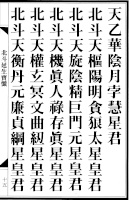 天乙華陰月孛慧星君
北斗天樞陽明貪狼太星皇君
北斗天旋陰精巨門元星皇君
北斗天機眞人祿存眞星皇君
北斗天權玄冥文曲紐星皇君
北斗天衡丹元廉貞綱星皇君
北斗延生寶懺